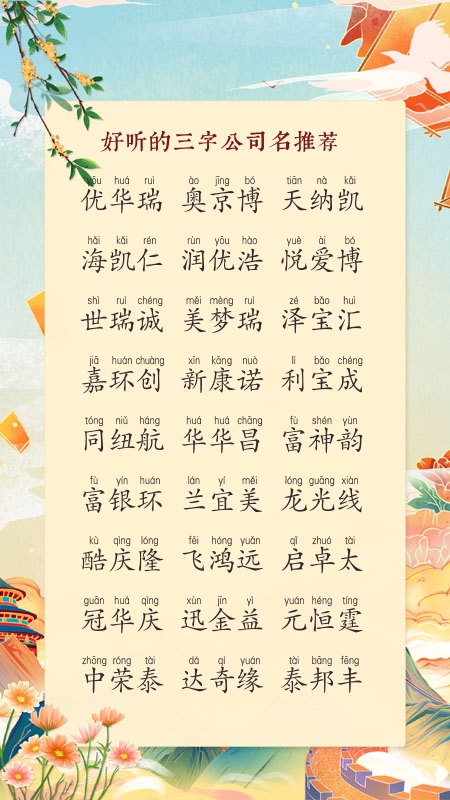 好听的三字公司名推荐
yōu huá ruì ào jīng bó tiān nà kǎi
优华瑞 奥京博 天纳凯
hǎi kǎi rén rùn yōu hào yuè ài bó
海凯仁 润优浩 悦爱博
shì ruì chéng měi mèng ruì zé bǎo huì
世瑞诚 美梦瑞 泽宝汇
jiā huán chuàng xīn kāng nuò lì bǎo chéng
嘉环创 新康诺 利宝成
tóng niǔ háng huá huá chāng fù shén yùn
同纽航 华华昌 富神韵
fù yín huán lán yí měi lóng guāng xiàn
富银环 兰宜美 龙光线
kù qìng lóng fēi hóng yuǎn qǐ zhuó tài
酷庆隆 飞鸿远 启卓太
guān huá qìng xùn jīn yì yuán héng tíng
冠华庆 迅金益 元恒霆
zhōng róng tài dá qí yuán tài bāng fēng
中荣泰 达奇缘 泰邦丰